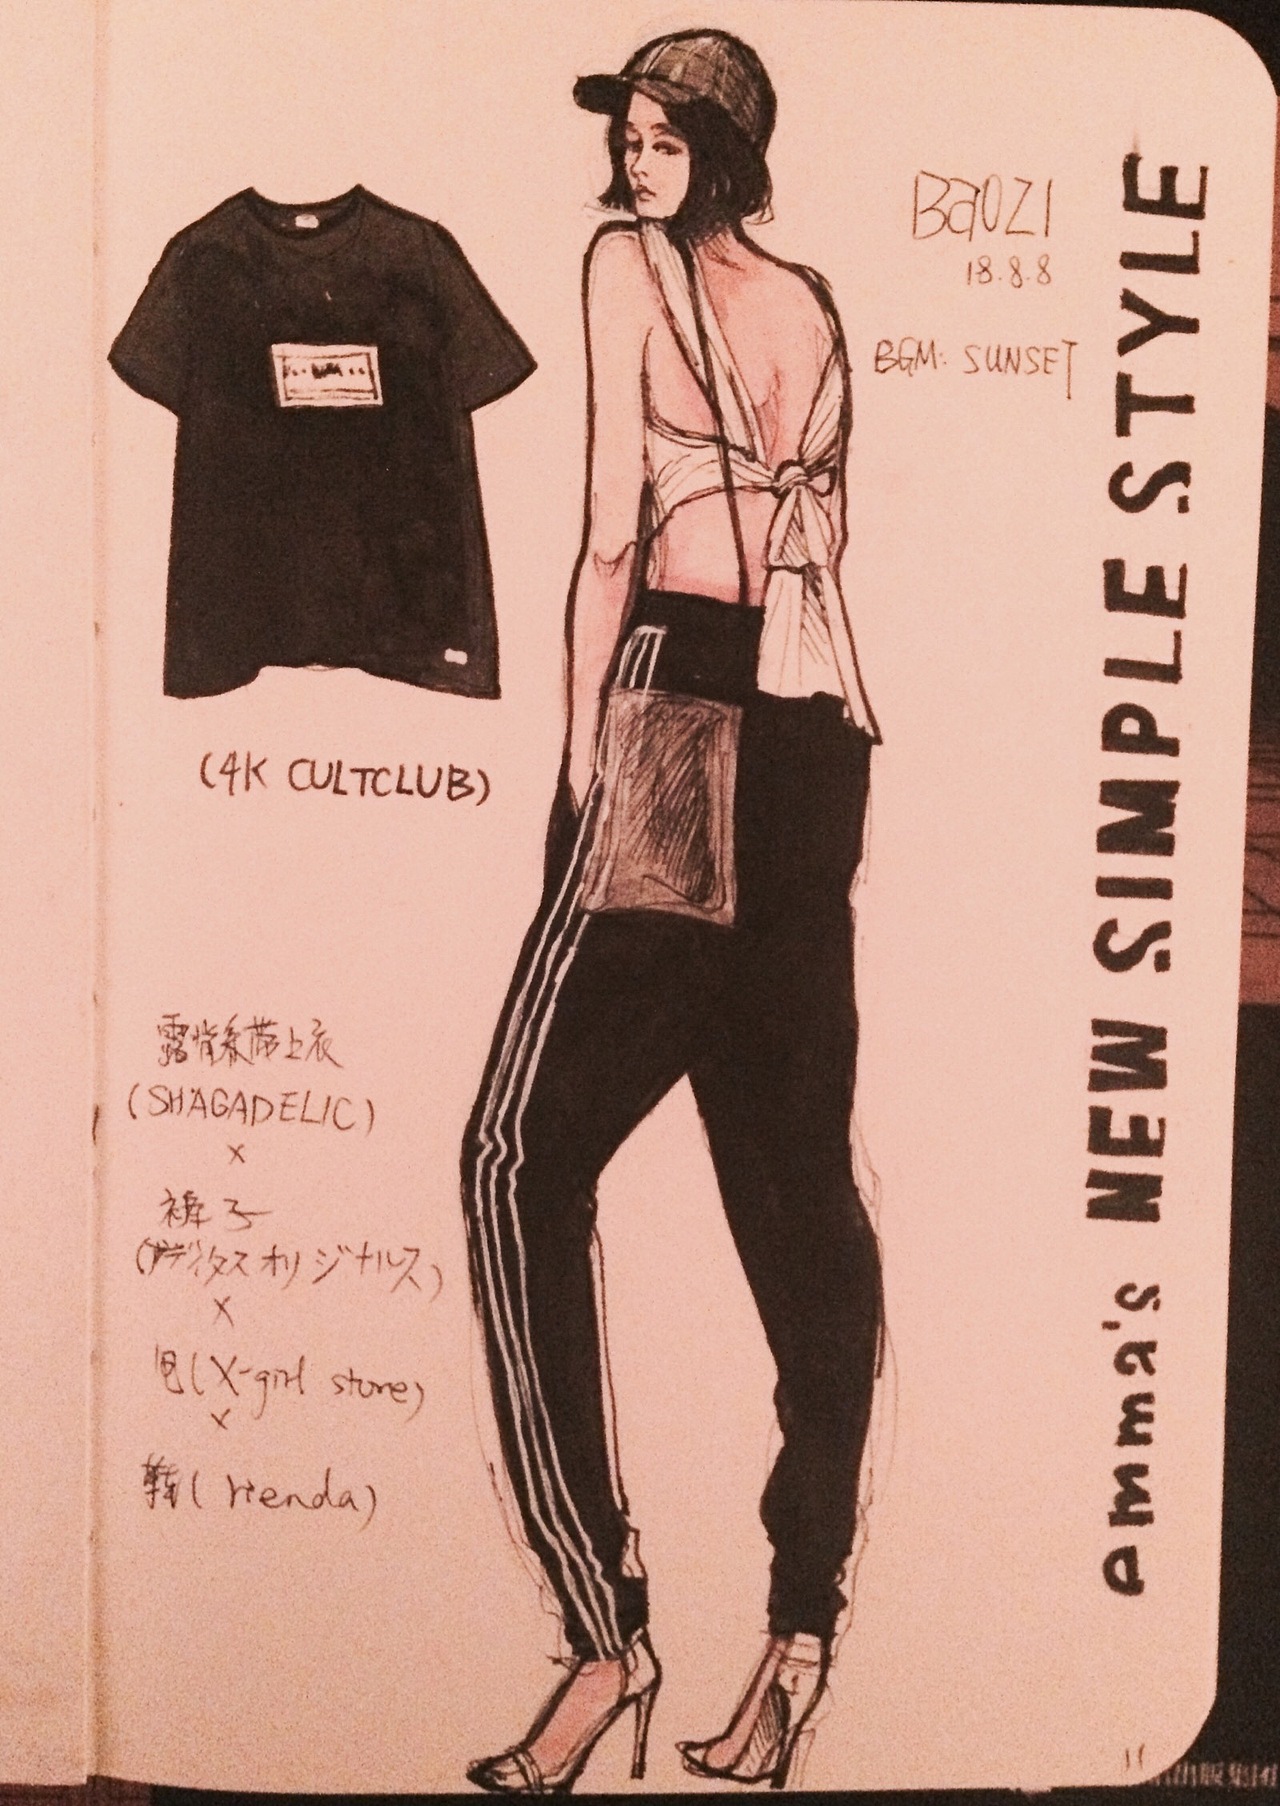 Baozi
18.8.8
BGM: SUNSET
emma's NEW SIMPLE STYLE
(4K CULTCLUB)
露背系带上衣
(SHAGADELIC)
x
裤子
(アディダスオリジナルス)
x
(X-girl store)
x
鞋(rienda)